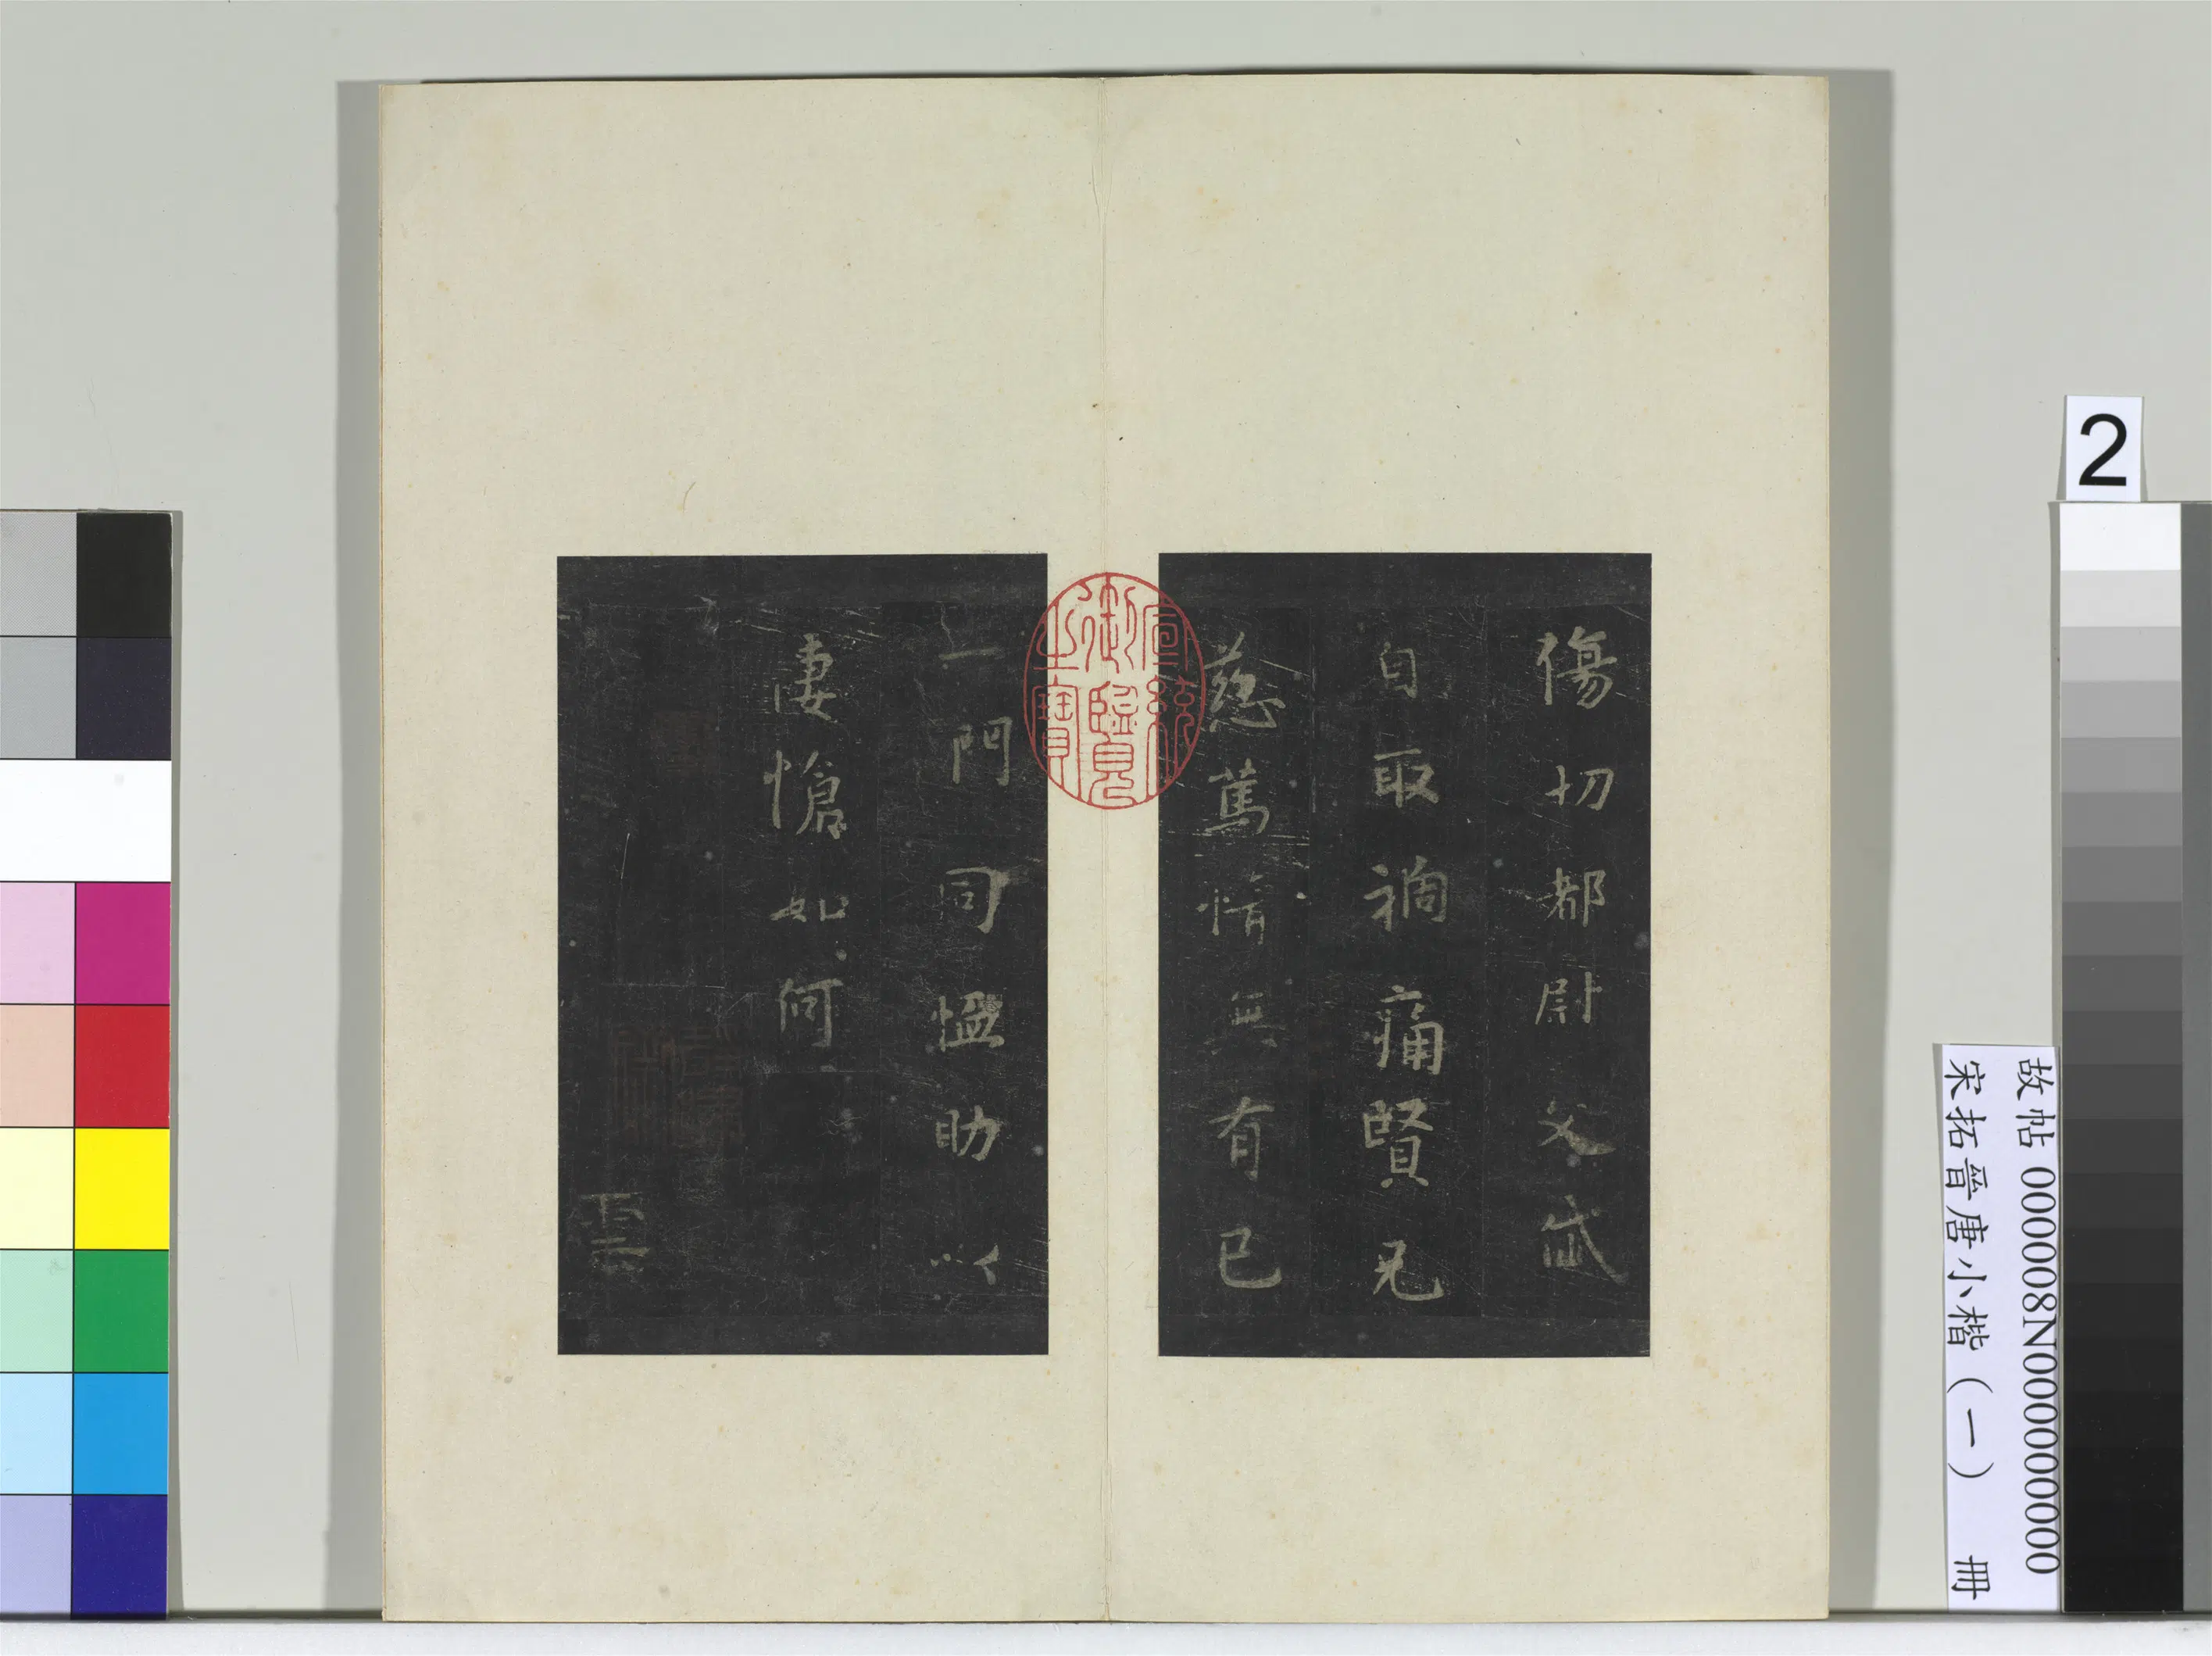 傷切都尉父岱
自取禍痛賢兄
慈篤情無有已
一門同恤助以
悽愴如何
雲
宣統
御覽
之寶
2
故帖 000008N000000000
宋拓晉唐小楷（一） 冊